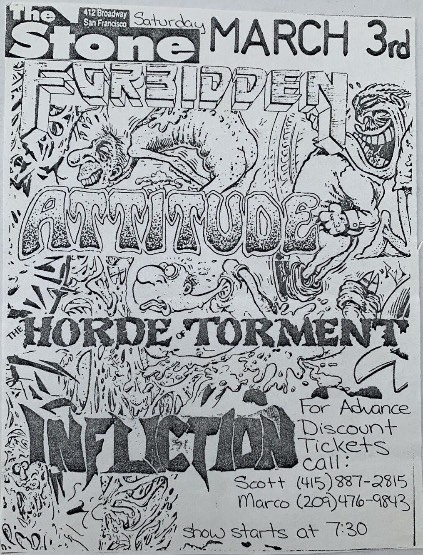 The Stone
412 Broadway
San Francisco
Saturday MARCH 3rd
FORBIDDEN
ATTITUDE
THE HORDE OF TORMENT
INFLICTION
For Advance
Discount
Tickets
call:
Scott (415) 887-2815
Marco (209) 476-9843
show starts at 7:30